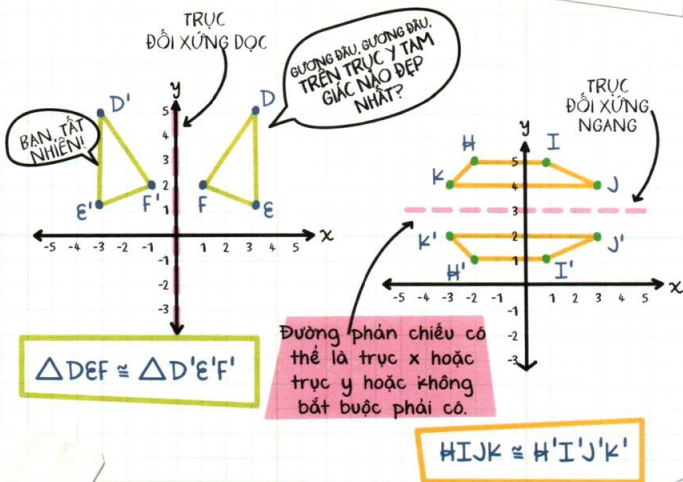 TRỤC
ĐỐI XỨNG DỌC
GƯƠNG ĐÂU, GƯƠNG ĐÂU,
TRÊN TRỤC Y TAM
GIÁC NÀO ĐẸP
NHẤT?
BẠN, TẤT
NHIÊN!
y
D'
D
E'
F'
F
E
x
5
4
3
2
1
-1
-2
-3
-5 -4 -3 -2 -1 1 2 3 4 5
△DEF ≅ △D'E'F'
TRỤC
ĐỐI XỨNG
NGANG
y
H
I
K
J
K'
J'
H'
I'
x
5
4
3
2
1
-1
-2
-3
-5 -4 -3 -2 -1 1 2 3 4 5
Đường phản chiếu có
thể là trục x hoặc
trục y hoặc không
bắt buộc phải có.
HIJK ≅ H'I'J'K'